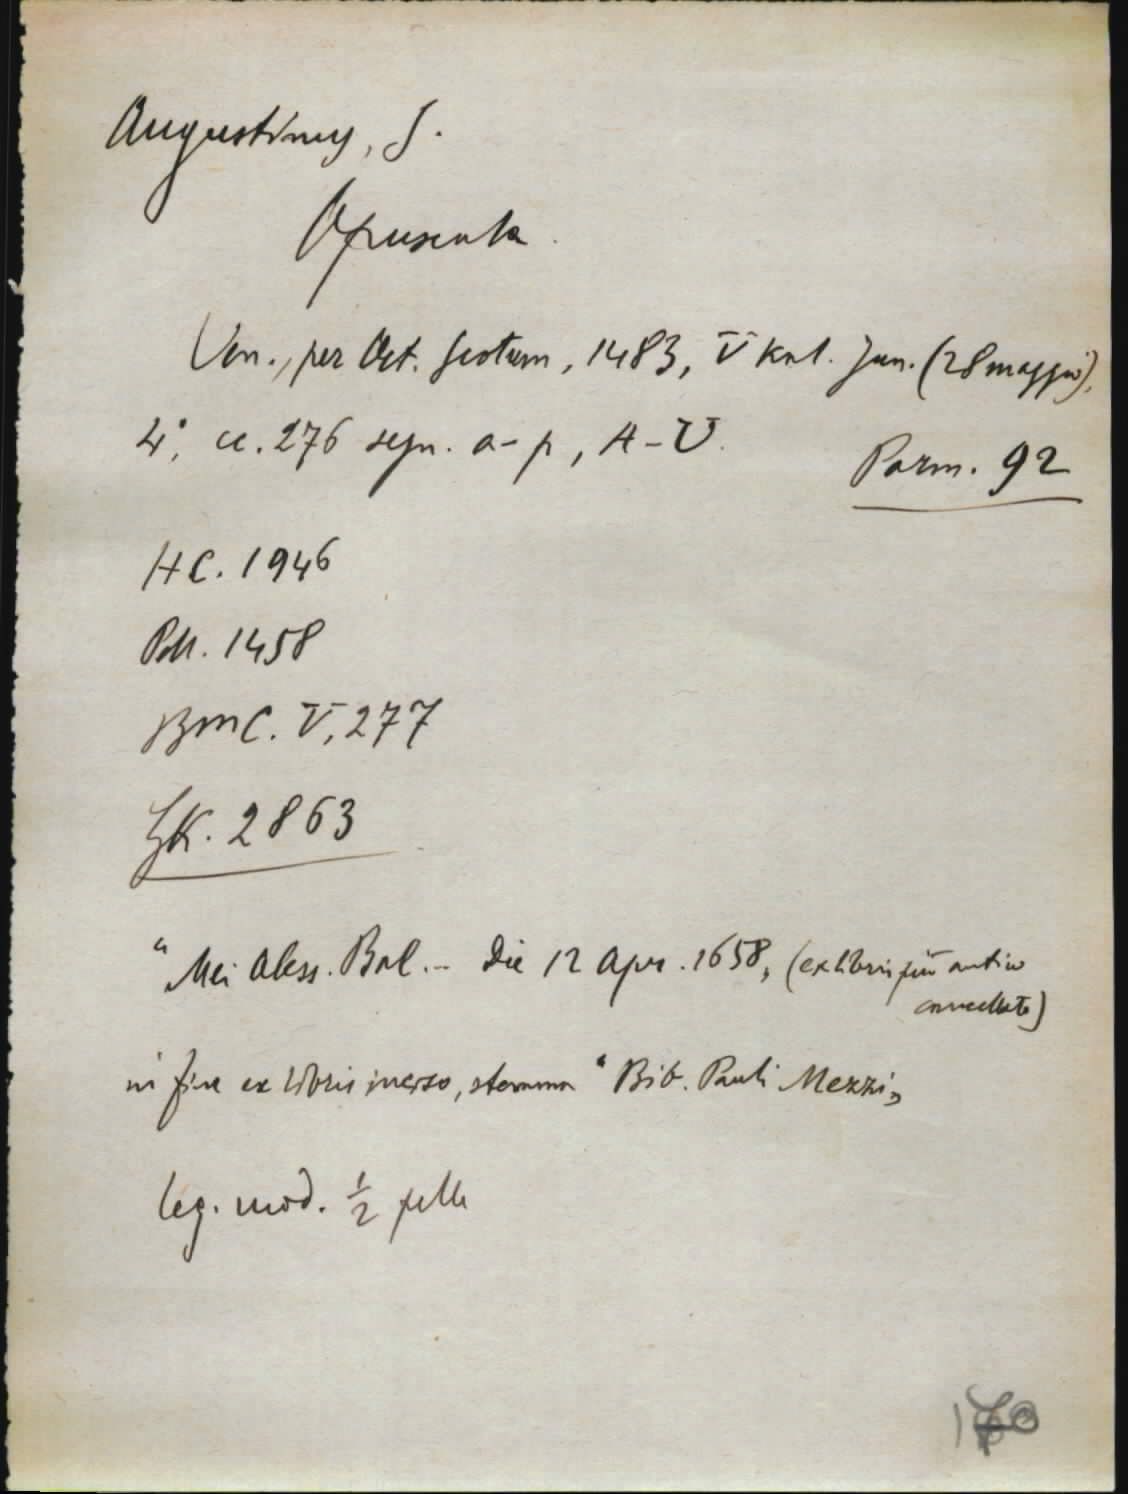 Augustinus, S.
Opuscula.
Ven., per Oct. Scotum, 1483, V Kal. Jun. (28 maggio),
4°, cc. 276 segn. a-p, A-V.
Parm. 92
HC. 1946
Poll. 1458
BMC. V, 277
GK. 2863
"Mei Aless. Bal.- Die 12 Apr. 1658„ (ex libris più antico
cancellato)
in fine ex libris inciso, stemma "Bib. Pauli Mezzi„
leg. mod. ½ pelle